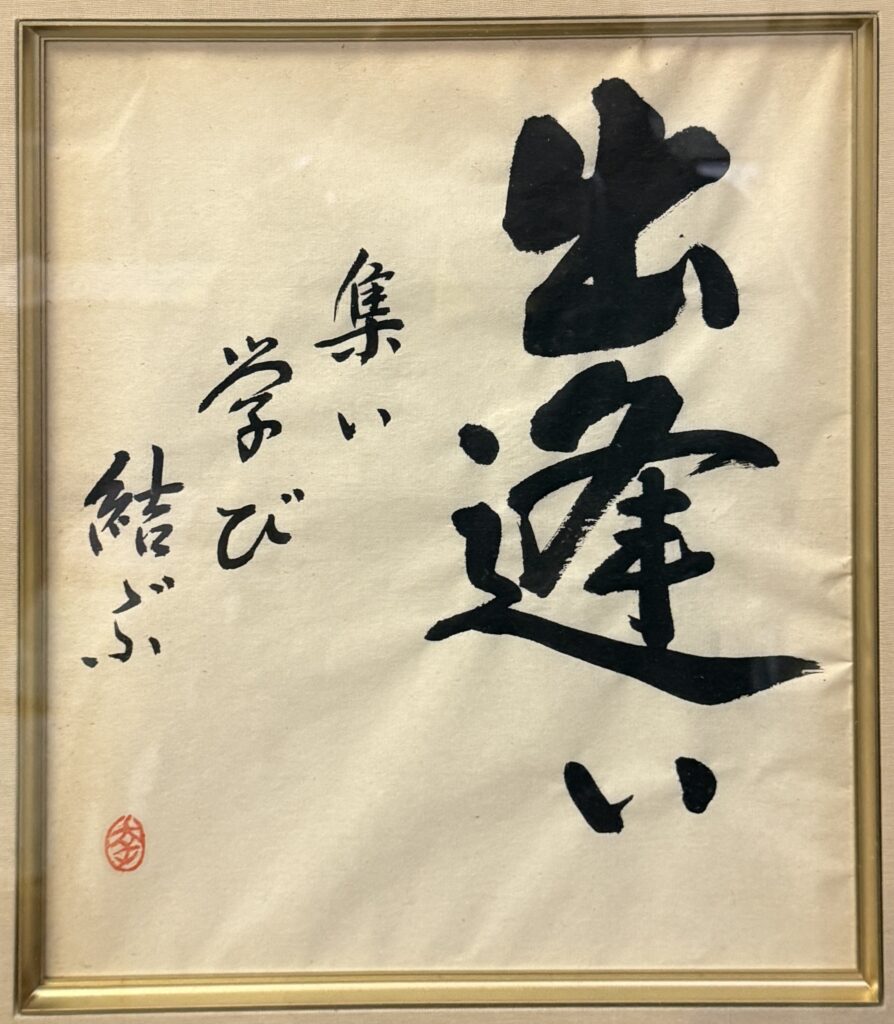 出逢い
集い
学び
結ぶ